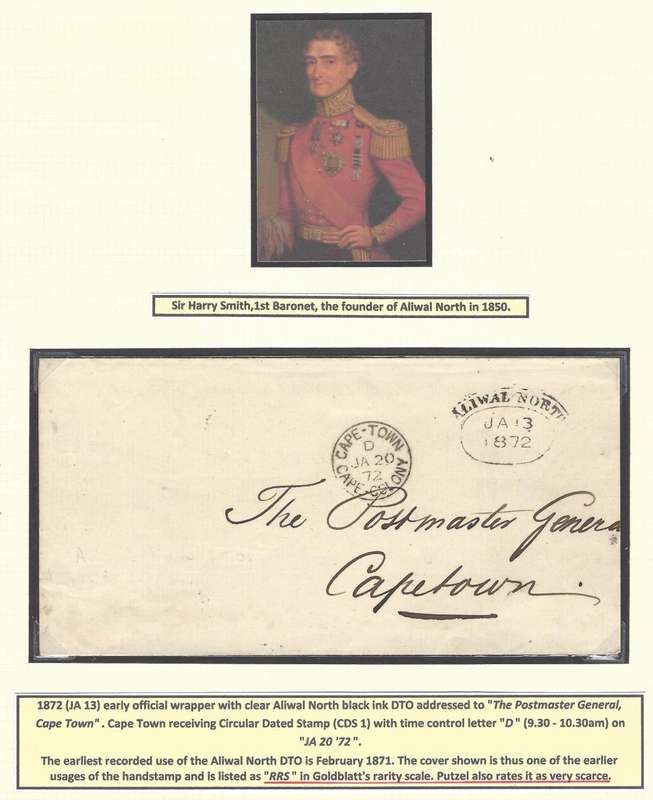 Sir Harry Smith,1st Baronet, the founder of Aliwal North in 1850.
ALIWAL NORTH
JA 13
1872
CAPE-TOWN
D
JA 20
72
CAPE-COLONY
The Postmaster General
Capetown.
1872 (JA 13) early official wrapper with clear Aliwal North black ink DTO addressed to "The Postmaster General,
Cape Town" . Cape Town receiving Circular Dated Stamp (CDS 1) with time control letter "D" (9.30 - 10.30am) on
"JA 20 '72 ".
The earliest recorded use of the Aliwal North DTO is February 1871. The cover shown is thus one of the earlier
usages of the handstamp and is listed as "RRS" in Goldblatt's rarity scale. Putzel also rates it as very scarce.